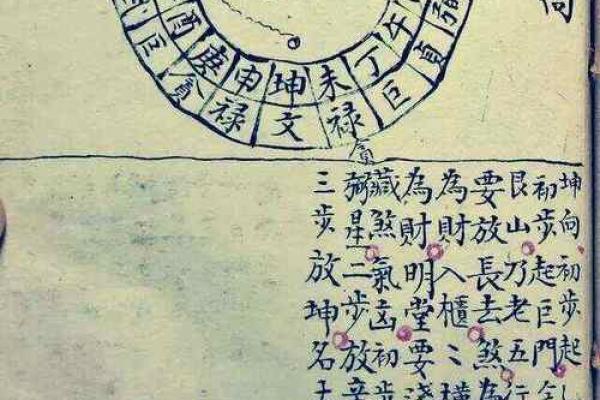 向
酉庚申坤未丁午
巨貪禄文禄巨貞
貪
坤向初步起
初步起巨門
艮山乃老五行
要放長去煞為
為財入櫃〻横
為財明堂要淺
藏煞氣凶初步
弼星二步放辛
三步放坤名